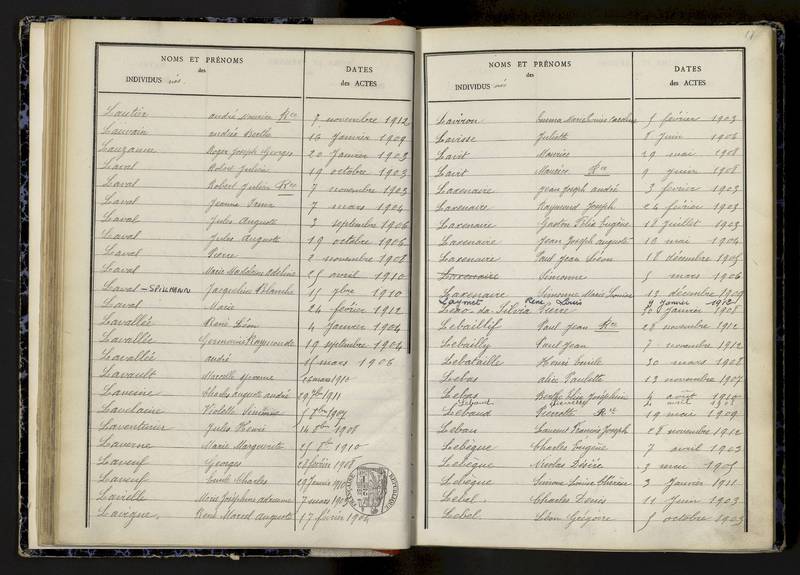 NOMS ET PRÉNOMS
des
INDIVIDUS nés
DATES
des ACTES
Lautier André Maurice Rce 7 novembre 1912
Lauvain Andrée Berthe 14 Janvier 1909
Lauzanne Roger Joseph Georges 20 Janvier 1903
Laval Robert Julien 19 octobre 1903
Laval Robert Julien Rce 7 novembre 1903
Laval Jeanne 7 mars 1904
Laval Jules Auguste 3 septembre 1906
Laval Jules Auguste 19 octobre 1906
Laval Pierre 2 novembre 1908
Laval Marie Madeleine 25 avril 1910
Laval - SPILMANN Jacqueline Blanche 15 9bre 1910
Laval Marie 24 février 1912
Lavallée René Léon 4 Janvier 1904
Lavallée Germaine Raymonde 19 septembre 1904
Lavallée André 15 mars 1906
Lavault Marcelle Yvonne 16 mars 1910
Laveine Charles Auguste André 29 1911
Lavelaine Violette 1907
Laventurier Jules Henri 14 8bre 1908
Laverne Marie Marguerite 25 8bre 1910
Laveuf Georges 28 février 1908
Laveuf Emile Charles 29 Janvier
Lavielle Marie Joséphine Adrienne 7 mars 1903
Lavigne René Marcel Auguste 17 février 1904
RÉPUBLIQUE FRANÇAISE
NOMS ET PRÉNOMS
des
INDIVIDUS nés
DATES
des ACTES
Laviron Emma Marie Louise Caroline 5 février 1903
Lavisse Juliette 8 Juin 1906
Maurice 29 mai 1908
Maurice Rce 9 Juin 1908
Laxenaire Jean Joseph André 3 février 1903
Laxenaire Raymond Joseph 24 février 1903
Laxenaire Gaston Félix Eugène 18 Juillet 1903
Laxenaire Jean Joseph Auguste 10 mai 1904
Laxenaire Paul Jean Léon 18 décembre 1905
Laxenaire Simonne 5 mars 1906
Laxenaire Simonne Marie Louise 13 décembre 1909
Laymet René, Louis 9 Janvier 1912
Léao da Silvia Pierre 30 Janvier 1908
Lebaillif Paul Jean Rce 28 novembre 1912
Lebailly Paul Jean 7 novembre 1912
Lebataille Henri Emile 30 mars 1908
Lebas Alice Paulette 13 novembre 1907
Lebas Berthe Elise Joséphine 4 août 1910
Lebaud Pierrette
Lebaud Pierrette Rce 19 mai 1909
Lebau Laurent François Joseph 28 novembre 1912
Lebègue Charles Eugène 7 avril 1903
Lebègue Nicolas Désiré 3 mai 1905
Lebègue Simone Louise Thérèse 3 Janvier 1911
Lebel Charles Denis 11 Juin 1903
Lebel Léon Grégoire 5 octobre 1903